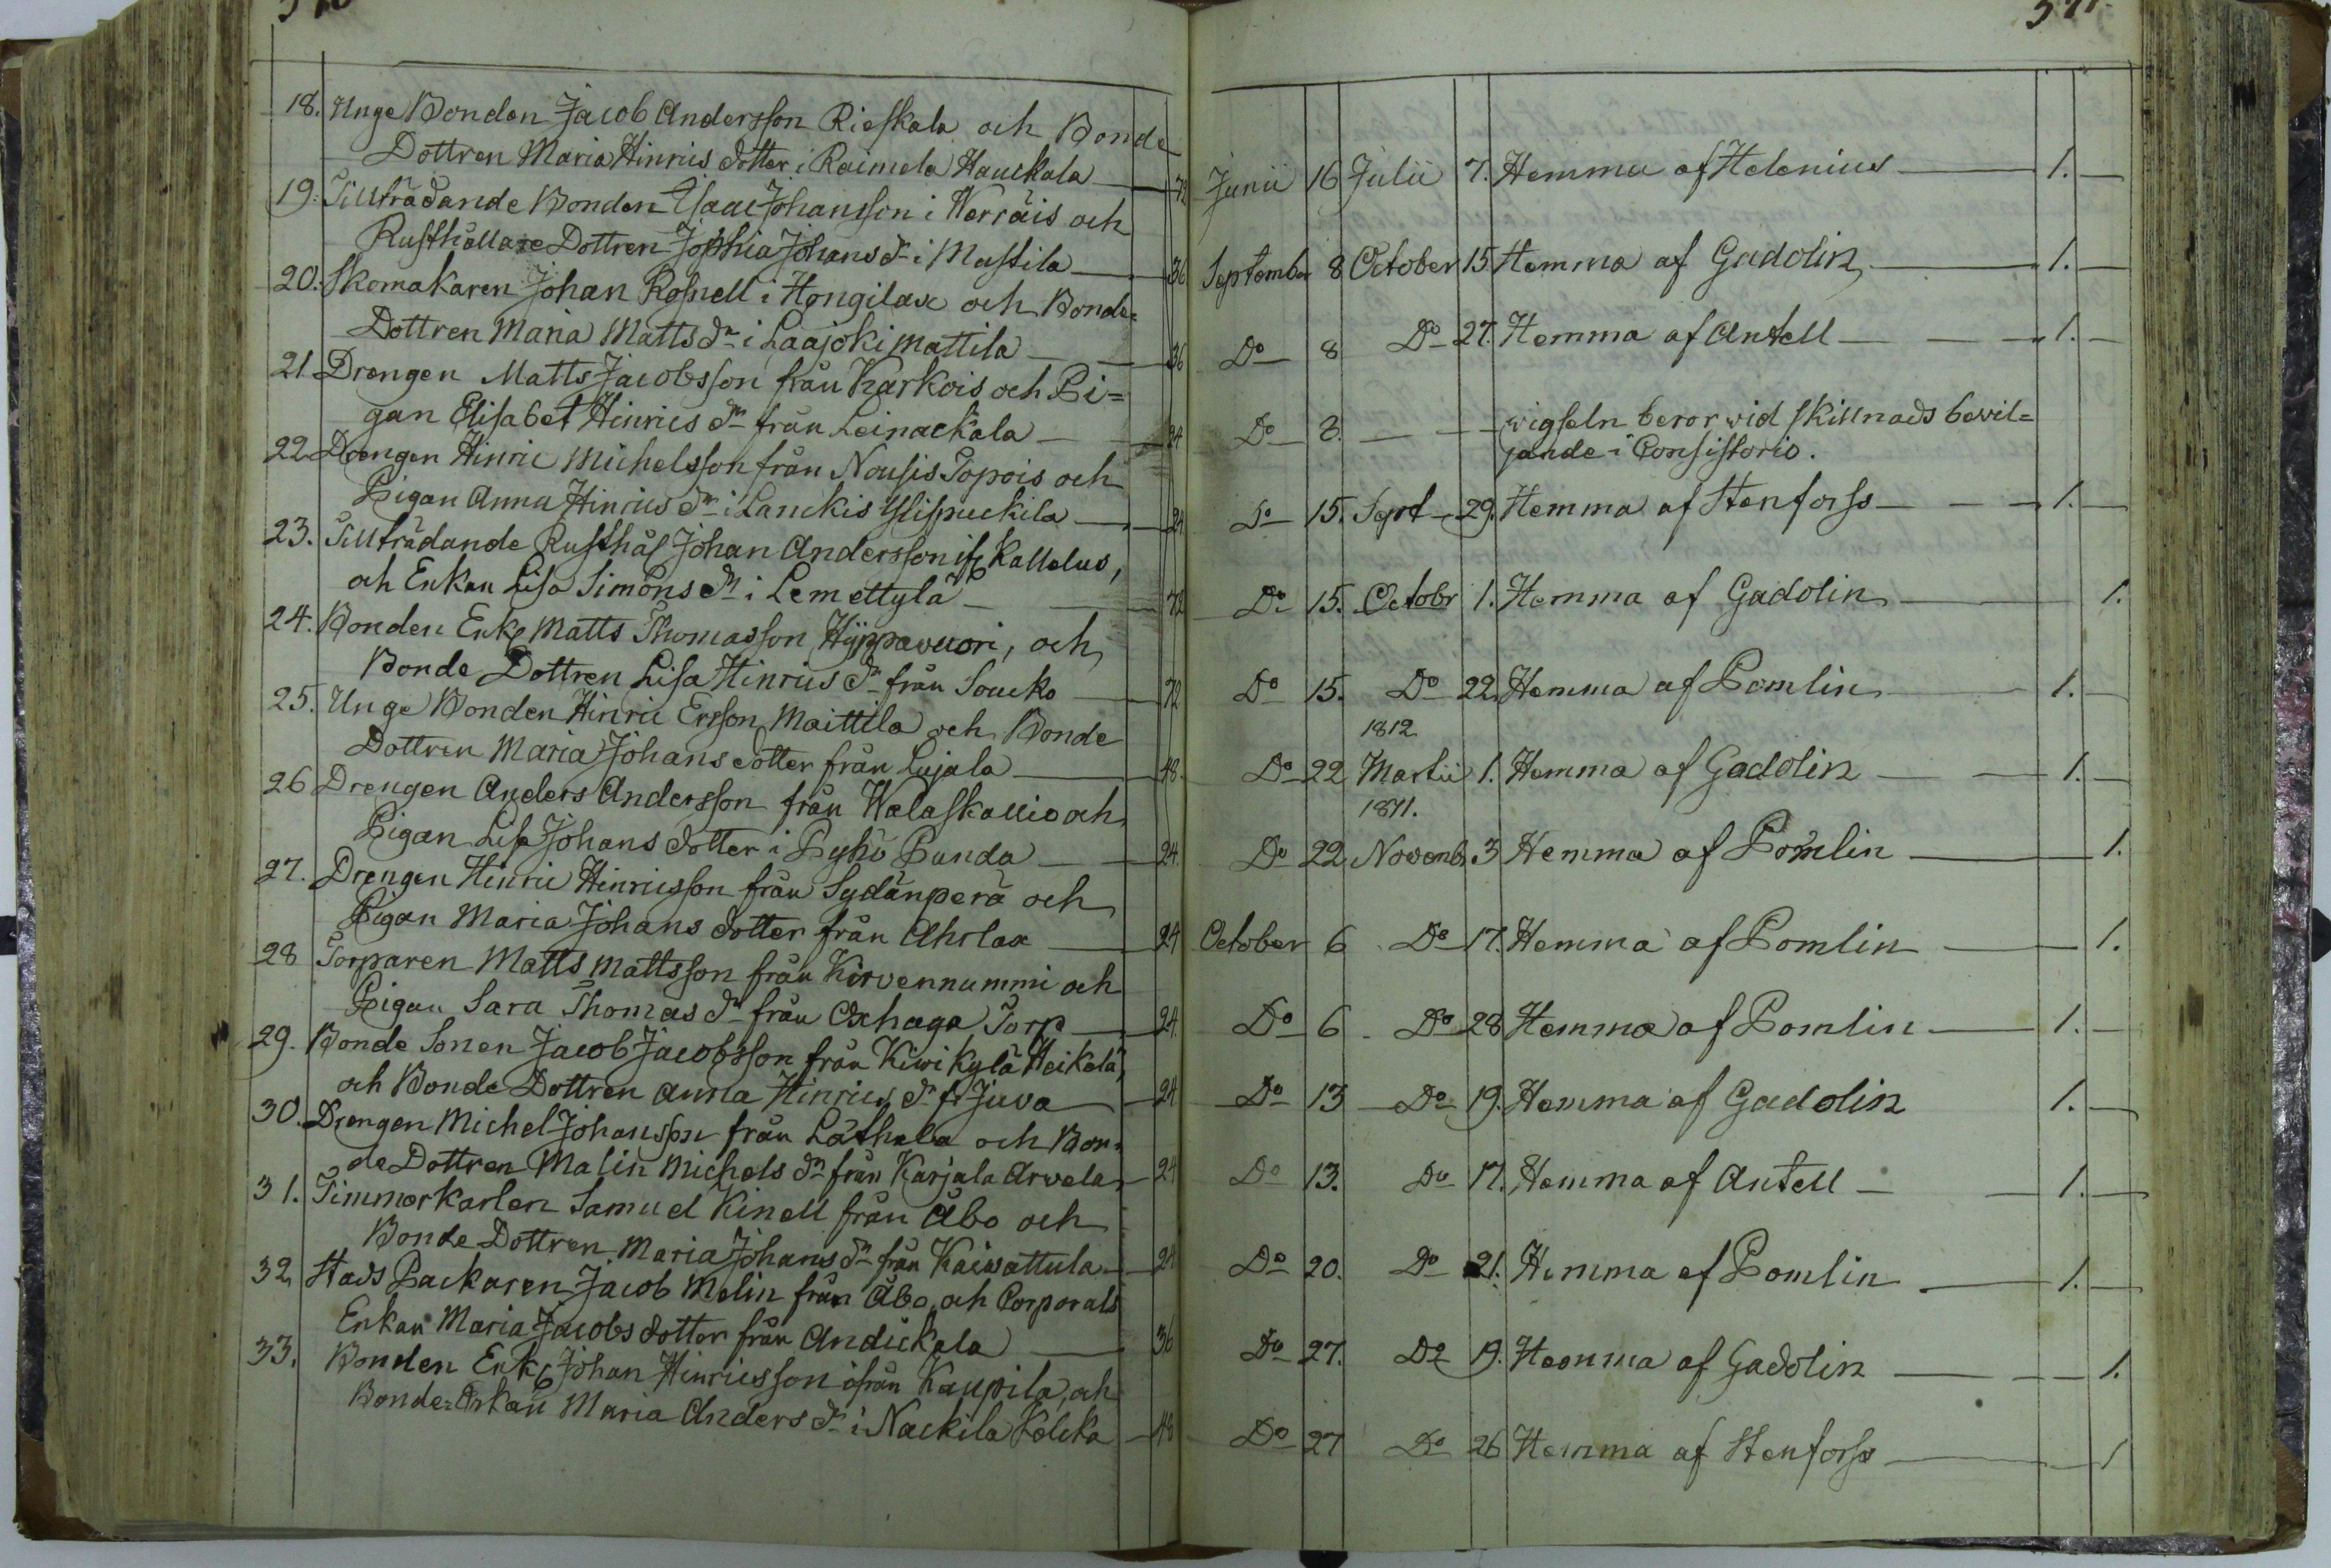 18. Unge Bonden Jacob Andersson Rieskala och Bonde
Dottren Maria Hinrics dotter i Raimela Hauckala — 72 Junii 16 Julii 7. Hemma af Helenius — 1. —
19. Tillträdande Bonden Isaac Johansson i Werräis och
Rusthållare Dottren Sophia Johans dr i Mustila — 36 September 8 October 15. Hemma af Gadolin — 1. —
20. Skomakaren Johan Rosnell i Hongilax och Bonde=
Dottren Maria Matts dr i Laajoki Mattila — 36 Do 8 Do 27. Hemma af Antell — 1. —
21. Drengen Matts Jacobsson från Karkois och Pi=
gan Elisabet Hinrics dr från Leinackala — 24 Do 8. — wigseln beror wid skillnads bevil=
jande i Consistorio.
22. Drengen Hinric Michelsson från Nousis Topois och
Pigan Anna Hinrics dr i Lanckis — 24 Do 15. Sept 29. Hemma af Stenforss — 1. —
23. Tillträdande Rusthål Johan Andersson ifr Kallelus,
och Enkan Lisa Simons dr i Lemettylä — 72 Do 15. Octobr 1. Hemma af Gadolin — 1.
24. Bonden Enkl Matts Thomasson Hyppävuori, och
Bonde Dottren Lisa Hinrics dr från Soucko — 72 Do 15. Do 22. Hemma af Pomlin — 1. —
25. Unge Bonden Hinric Ersson Maittila och Bonde
1812.
Dottren Maria Johans dotter från Lujala — 48. Do 22 Martii 1. Hemma af Gadolin — 1. —
26 Drengen Anders Andersson från Walaskallio och
1811.
Pigan Lisa Johans dotter i Pyhö Punda — 24. Do 22 Novemb. 3 Hemma af Pomlin — 1.
27. Drengen Hinric Hinricsson från Sydänperä och
Pigan Maria Johans dotter från Ahrlax — 24 October 6 Do 17. Hemma af Pomlin — 1.
28 Torparen Matts Mattsson från Kirvennummi och
Pigan Sara Thomas dr från Oxhaga Torp — 24. Do 6 Do 28 Hemma af Pomlin — 1. —
29. Bonde Sonen Jacob Jacobsson från Kiwikylä Heikelä,
och Bonde Dottren Anna Hinrics dr fr Juva — 24 Do 13 Do 19. Hemma af Gadolin 1. —
30. Drengen Michel Johansson från Läthala och Bon=
de Dottren Malin Michels dr från Karjala Arvela — 24 Do 13. Do 17. Hemma af Antell — 1. —
31. Timmerkarlen Samuel Kinell från Åbo och
Bonde Dottren Maria Johans dr från Kaiwattula — 24 Do 20. Do 21. Hemma af Pomlin — 1. —
32. Stads Packaren Jacob Melin från Åbo, och Corporals
Enkan Maria Jacobs dotter från Andickala — 36 Do 27. Do 19. Hemma af Gadolin — 1.
33. Bonden Enkl Johan Hinricsson ifrån Kaupila, och
Bonde=Enkan Maria Anders dr i Nackila Kolcka — 48 Do 27 Do 26 Hemma af Stenforss — 1